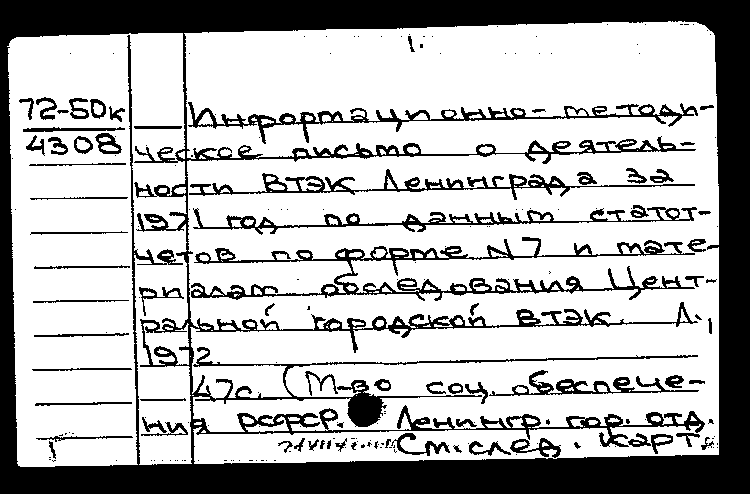 1.
72-50к
4308
Информационно-методи-
ческое письмо о деятель-
ности ВТЭК Ленинграда за
1971 год по данным статот-
четов по форме N7 и мате-
риалам обследования Цент-
ральной городской ВТЭК. Л.,
1972.
47с. (М-во соц. обеспече-
ния РСФСР. Ленингр. гор. отд.
См. след. карт.